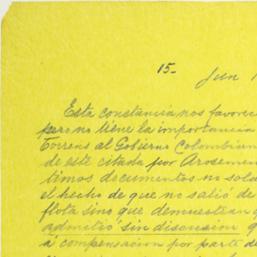 15-
Jun 1
Esta constancia nos favorec
pero no tiene la importancia
Torrens al Gobierno Colombian
de este citada por Arosemen
timos documentos no sola
el hecho de que no salió de
flota sino que demuestran q
admitió sin discusion q
a compensacion por parte d